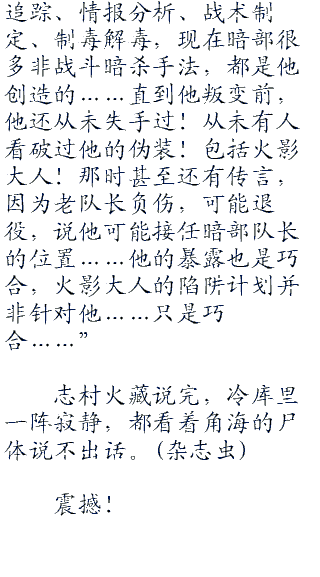 追踪、情报分析、战术制
定、制毒解毒，现在暗部很
多非战斗暗杀手法，都是他
创造的……直到他叛变前，
他还从未失手过！从未有人
看破过他的伪装！包括火影
大人！那时甚至还有传言，
因为老队长负伤，可能退
役，说他可能接任暗部队长
的位置……他的暴露也是巧
合，火影大人的陷阱计划并
非针对他……只是巧
合……”
志村火藏说完，冷库里
一阵寂静，都看着角海的尸
体说不出话。(杂志虫)
震撼！